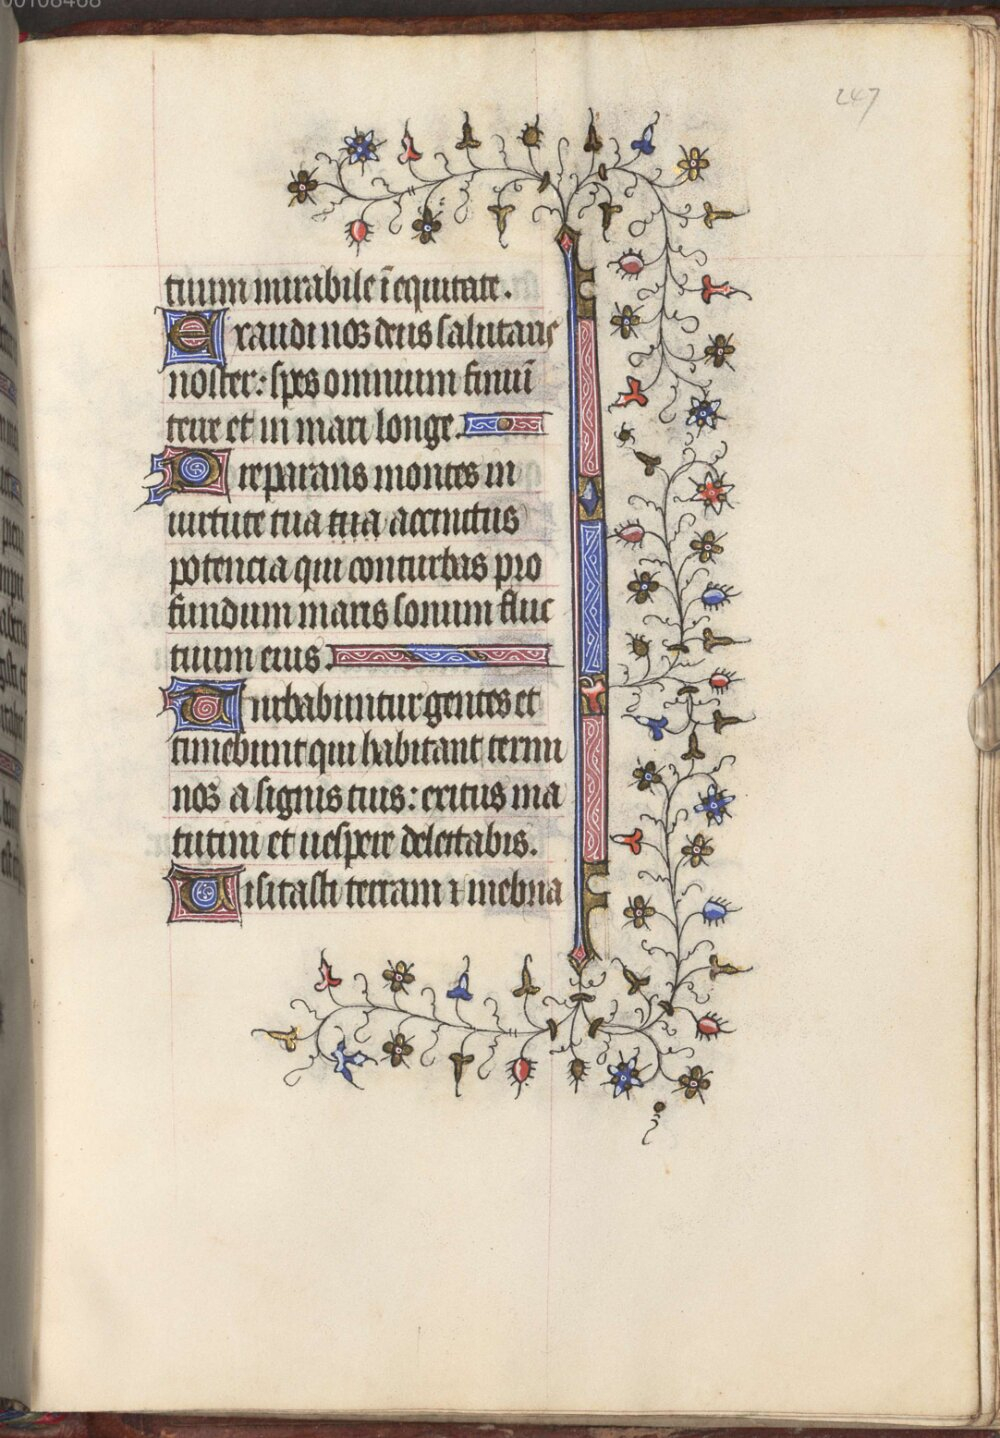 247
tuum mirabile ī equitate.
Exaudi nos deus salutaris
noster: spes omnium finiū
terre et in mari longe.
Preparans montes in
uirtute tua tua accinctus
potencia qui conturbas pro
fundum maris sonum fluc
tuum eius.
Turbabuntur gentes et
timebunt qui habitant termi
nos a signis tuis: exitus ma
tutini et uespere delectabis.
Uisitasti terram ⁊ inebria